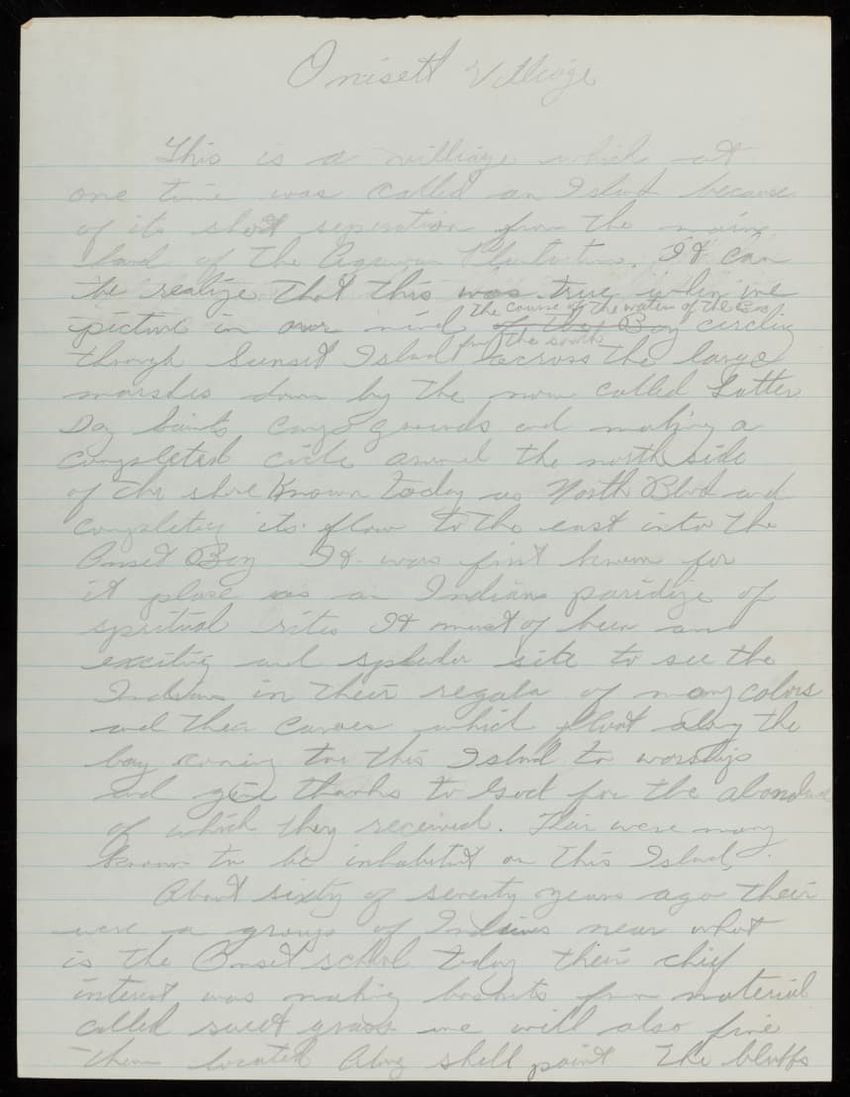 Onisett Villiage
This is a villiage which at
one time was called an Island because
of its short seperation from the main
land of the Agawam Plantation. It can
be realize that this was true when we
the course of the water of the East
picture in our mind of the Bay circling
from the south
through Sunset Island across the large
marshes down by the now called Latter
Day Saints camp grounds and making a
completed circle around the north side
of the shore Known today as North Blvd and
completey its flow to the east into the
Onset Bay It was first known for
it place as an Indians paridize of
spritual rites It must of been an
exciting and splender site to see the
Indians in their regala of many colors
and their canoes which float along the
bay coming to this Island to worship
and give thanks to God for the abondance
of which they received. Thair were many
known to be inhabited on this Island.
About sixty of seventy years ago their
were a group of Indians near what
is the Onset school today their chief
interest was making baskets from material
called sweet grass we will also fine
them located Along shell point The bluffs